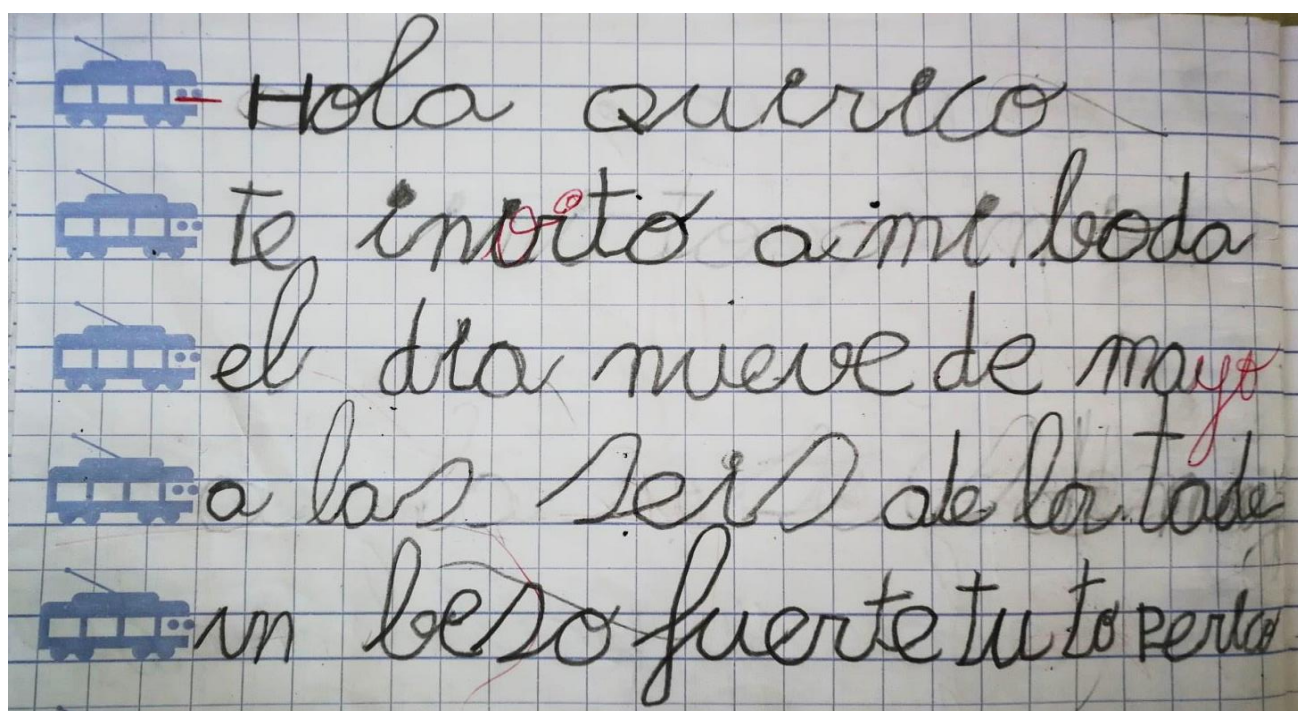 Hola quirico
te invito a mi boda
el dia nueve de mayo
a las seis de la tade
un beso fuerte tu to Perico